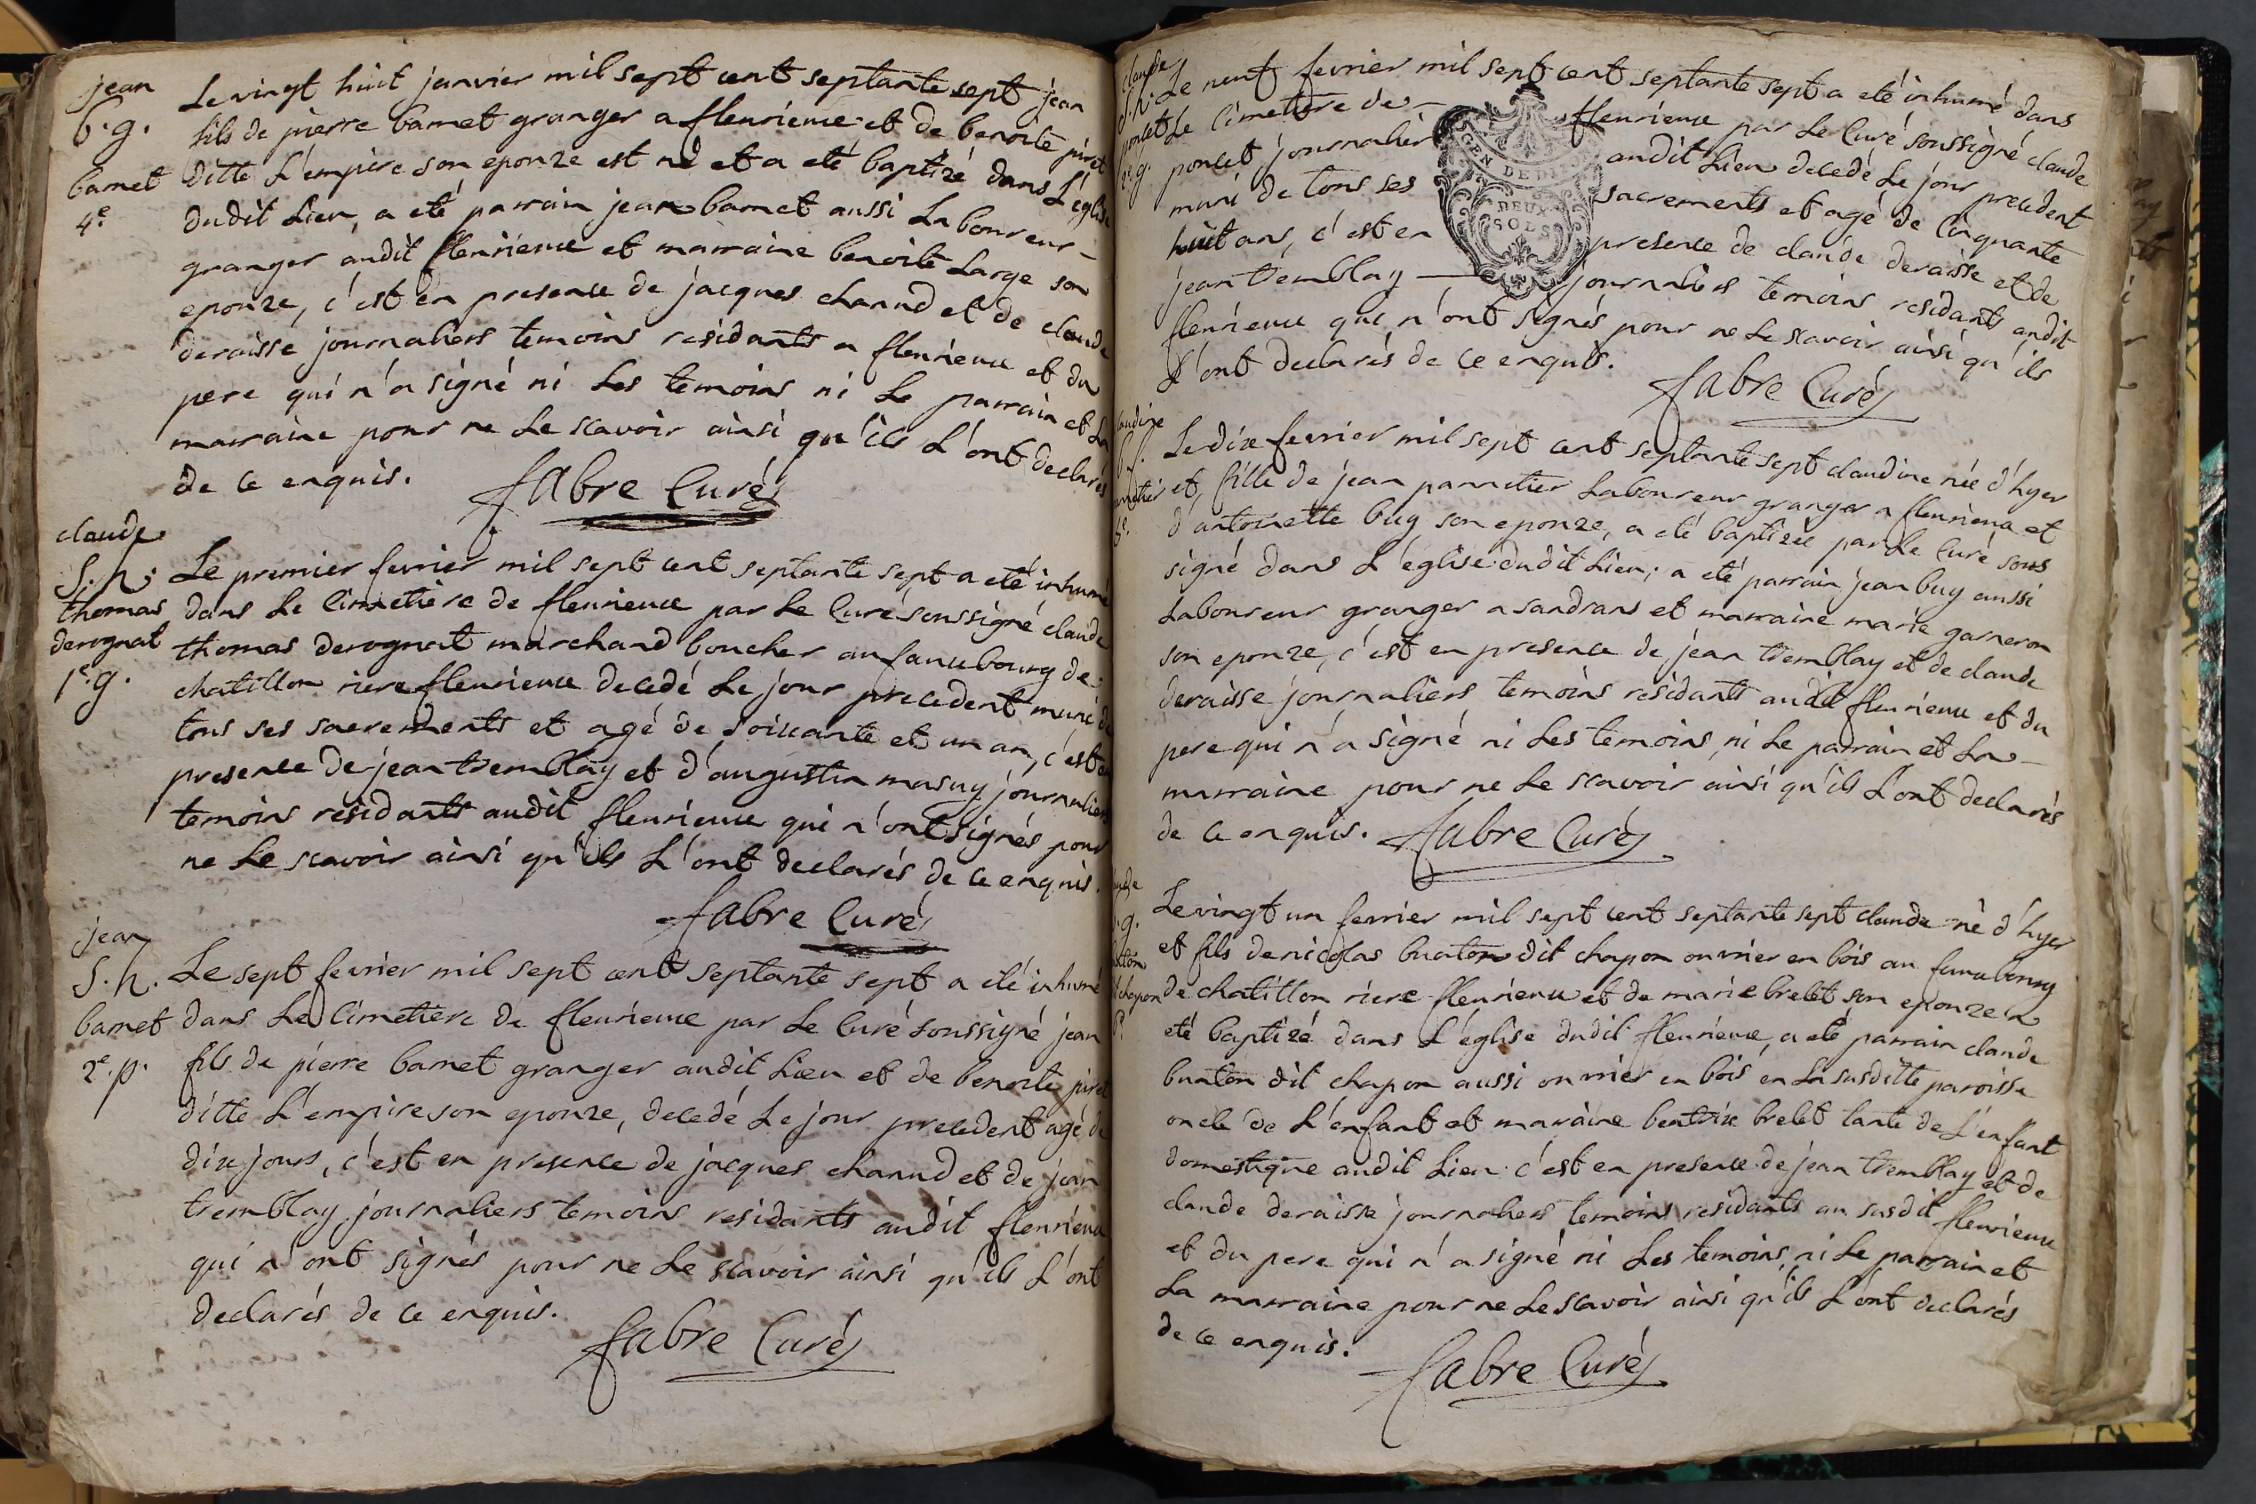 jean
b. g.
barnet
4e
Le vingt huit janvier mil sept cent septante sept jean
fils de pierre barnet granger a fleurieux et de benoite piret
ditte L'empire son epouze est né et a eté baptizé dans L'église
dudit Lieu, a eté parrain jean barnet aussi Laboureur
granger audit fleurieux et marraine benoite Large son
epouze, c'est en presence de jacques charud et de claude
deraisse journaliers temoins residants a fleurieux et du
pere qui n'a signé ni Les temoins ni Le parrain et La
marraine pour ne Le scavoir ainsi qu'ils L'ont declarés
de ce enquis. fabre Curé
claude
S. h.
thomas
derognat
1e. g.
Le premier fevrier mil sept cent septante sept a eté inhumé
dans Le Cimetiere de fleurieux par Le Curé soussigné claude
thomas derognat marchand boucher au fauxbourg de
chatillon riere fleurieux decedé Le jour precedent muni de
tous ses sacrements et agé de soixante et un an, c'est en
presence de jean tremblay et d'augustin masuy journaliers
temoins residants audit fleurieux qui n'ont signés pour
ne Le scavoir ainsi qu'ils L'ont declarés de ce enquis.
fabre Curé
jean
S. h.
barnet
2e. p.
Le sept fevrier mil sept cent septante sept a eté inhumé
dans Le Cimetiere de fleurieux par Le Curé soussigné jean
fils de pierre barnet granger audit Lieu et de benoite piret
ditte L'empire son epouze, decedé Le jour precedent agé de
dix jours, c'est en presence de jacques charud et de jean
tremblay journaliers temoins residants audit fleurieux
qui n'ont signés pour ne Le scavoir ainsi qu'ils L'ont
declarés de ce enquis.
fabre Curé
claude
S. h.
poncet
2e. g.
Le neuf fevrier mil sept cent septante sept a eté inhumé dans
Le Cimettere de fleurieux par Le Curé soussigné claude
poncet journalier audit Lieu decedé Le jour precedent
muni de tous ses sacrements et agé de Cinquante
huit ans, c'est en presence de claude deraisse et de
jean tremblay journaliers temoins residants audit
fleurieux qui n'ont signés pour ne Le scavoir ainsi qu'ils
L'ont declarés de ce enquis.
GEN DE DI
DEUX
SOLS
fabre Curé
Le dix fevrier mil sept cent septante sept claudine née d'hyer
et fille de jean pannetier Laboureur granger a fleurieux et
d'antoinette buy son epouze, a eté baptizée par Le Curé sous
signé dans L'église dudit Lieu; a eté parrain jean buy aussi
Laboureur granger a sandrans et marraine marie garneron
son epouze, c'est en presence de jean tremblay et de claude
deraisse journaliers temoins residants audit fleurieux et du
pere qui n'a signé ni Les temoins ni Le parrain et La
marraine pour ne Le scavoir ainsi qu'ils L'ont declarés
de ce enquis. fabre Curé
Le vingt un fevrier mil sept cent septante sept claude né d'hyer
et fils de nicolas buaton dit chapon ouvrier en bois au fauxbourg
de chatillon riere fleurieux et de marie brelet son epouze a
eté baptizé dans L'église dudit fleurieux, a eté parrain claude
buaton dit chapon aussi ouvrier en bois en La susditte paroisse
oncle de L'enfant et maraine beatrix brelet tante de L'enfant
domestique audit Lieu c'est en presence de jean tremblay et de
claude deraisse journaliers temoins residants au susdit fleurieux
et du pere qui n'a signé ni Les temoins, ni Le parrain et
La marraine pour ne Le scavoir ainsi qu'ils L'ont declarés
de ce enquis.
fabre Curé